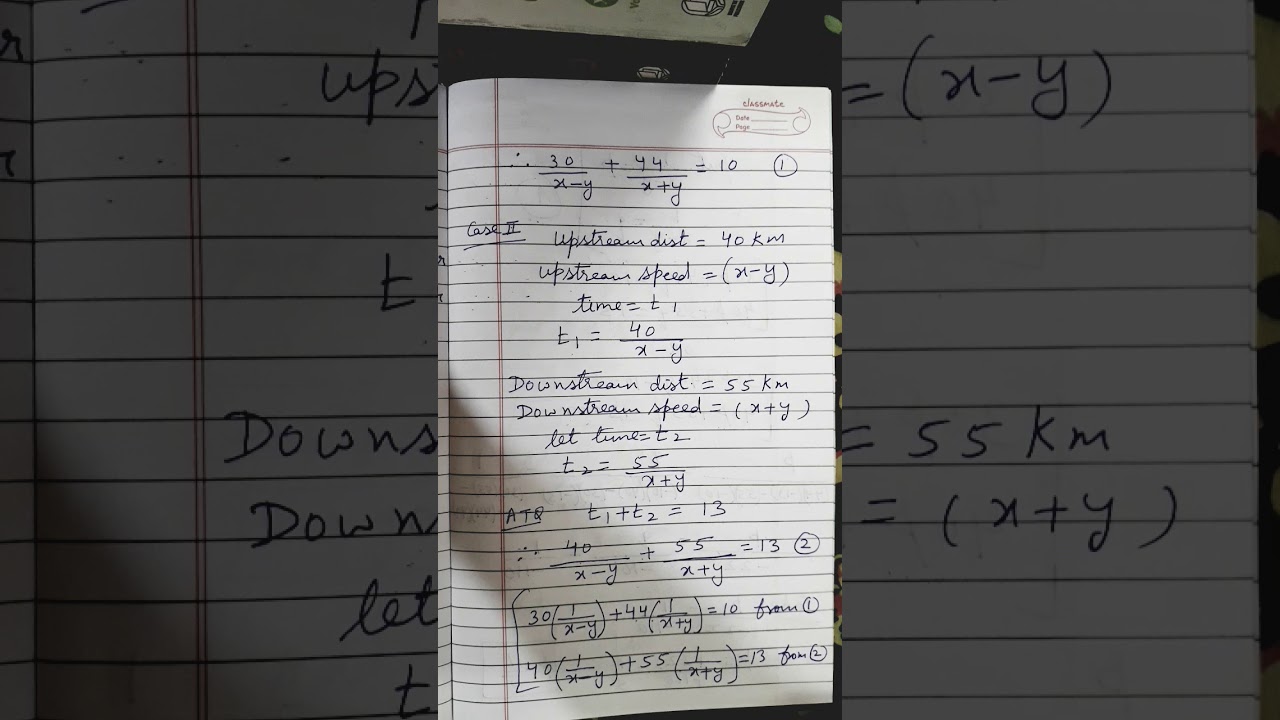 classmate
Date
Page
∴ 30/(x-y) + 44/(x+y) = 10 ①
Case II
Upstream dist = 40 km
Upstream speed = (x-y)
time = t1
t1 = 40/(x-y)
Downstream dist. = 55 km
Downstream speed = (x+y)
let time = t2
t2 = 55/(x+y)
ATQ t1+t2 = 13
∴ 40/(x-y) + 55/(x+y) = 13 ②
30(1/(x-y)) + 44(1/(x+y)) = 10 from ①
40(1/(x-y)) + 55(1/(x+y)) = 13 from ②